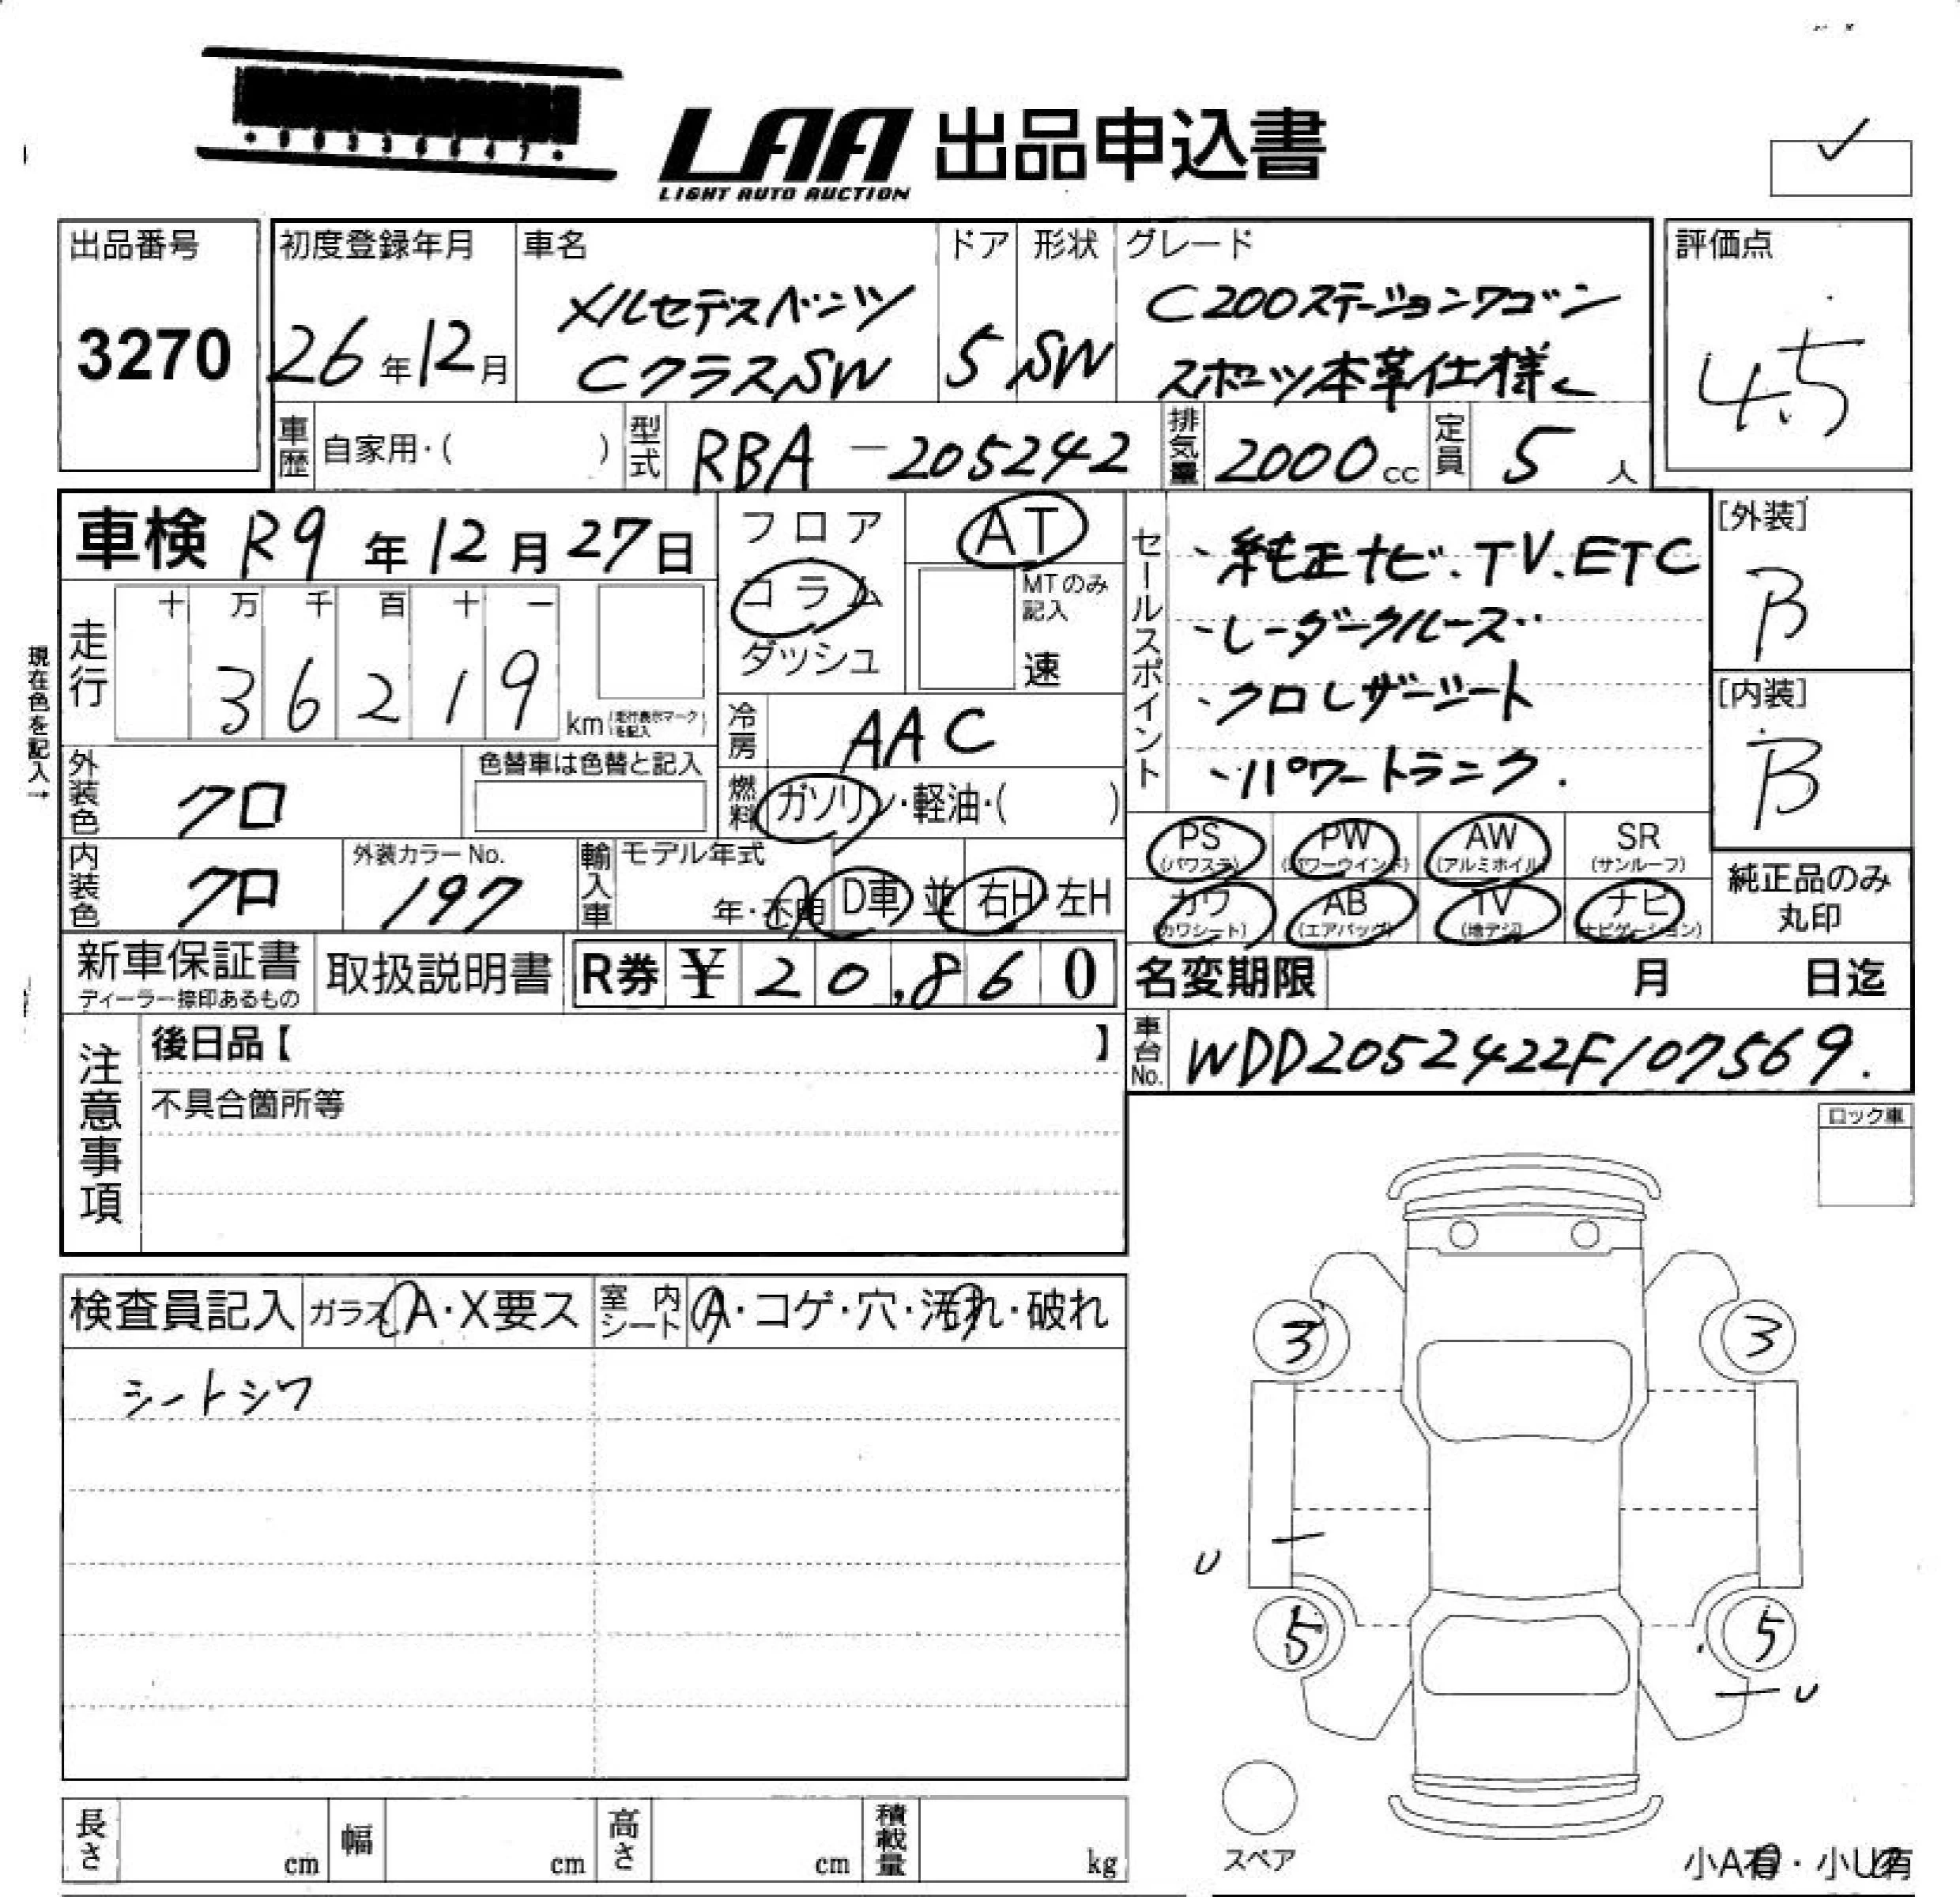 LAA 出品申込書
LIGHT AUTO AUCTION
出品番号
3270
初度登録年月
26年12月
車名
メルセデスベンツ
CクラスSW
ドア
5
形状
SW
グレード
C200ステーションワゴン
スポーツ本革仕様
評価点
4.5
車歴 自家用・( )
型式 RBA-205242
排気量 2000cc
定員 5人
車検 R9年12月27日
フロア
コラム
ダッシュ
AT
MTのみ記入
速
セールスポイント
・純正ナビ.TV.ETC
・レーダークルーズ
・クロレザーシート
・パワートランク.
[外装]
B
[内装]
B
現在色を記入→
走行
十 万 千 百 十 一
36219
km(走行表示マークを記入)
冷房 AAC
外装色 クロ
色替車は色替と記入
燃料 ガソリン・軽油・( )
内装色 クロ
外装カラーNo.
197
輸入車 モデル年式
年・不明
D車 並 右H・左H
PS (パワステ)
PW (パワーウインド)
AW (アルミホイル)
SR (サンルーフ)
カワ (カワシート)
AB (エアバッグ)
TV (地デジ)
ナビ (ナビゲーション)
純正品のみ
丸印
新車保証書
ディーラー捺印あるもの
取扱説明書
R券 ¥20,860
名変期限 月 日迄
車台No. WDD2052422F107569.
注意事項
後日品【 】
不具合箇所等
ロック車
検査員記入 ガラス A・X要ス
室内シート A・コゲ・穴・汚れ・破れ
シートシワ
3
3
U
5
5
U
スペア
長さ cm
幅 cm
高さ cm
積載量 kg
小A有・小U有